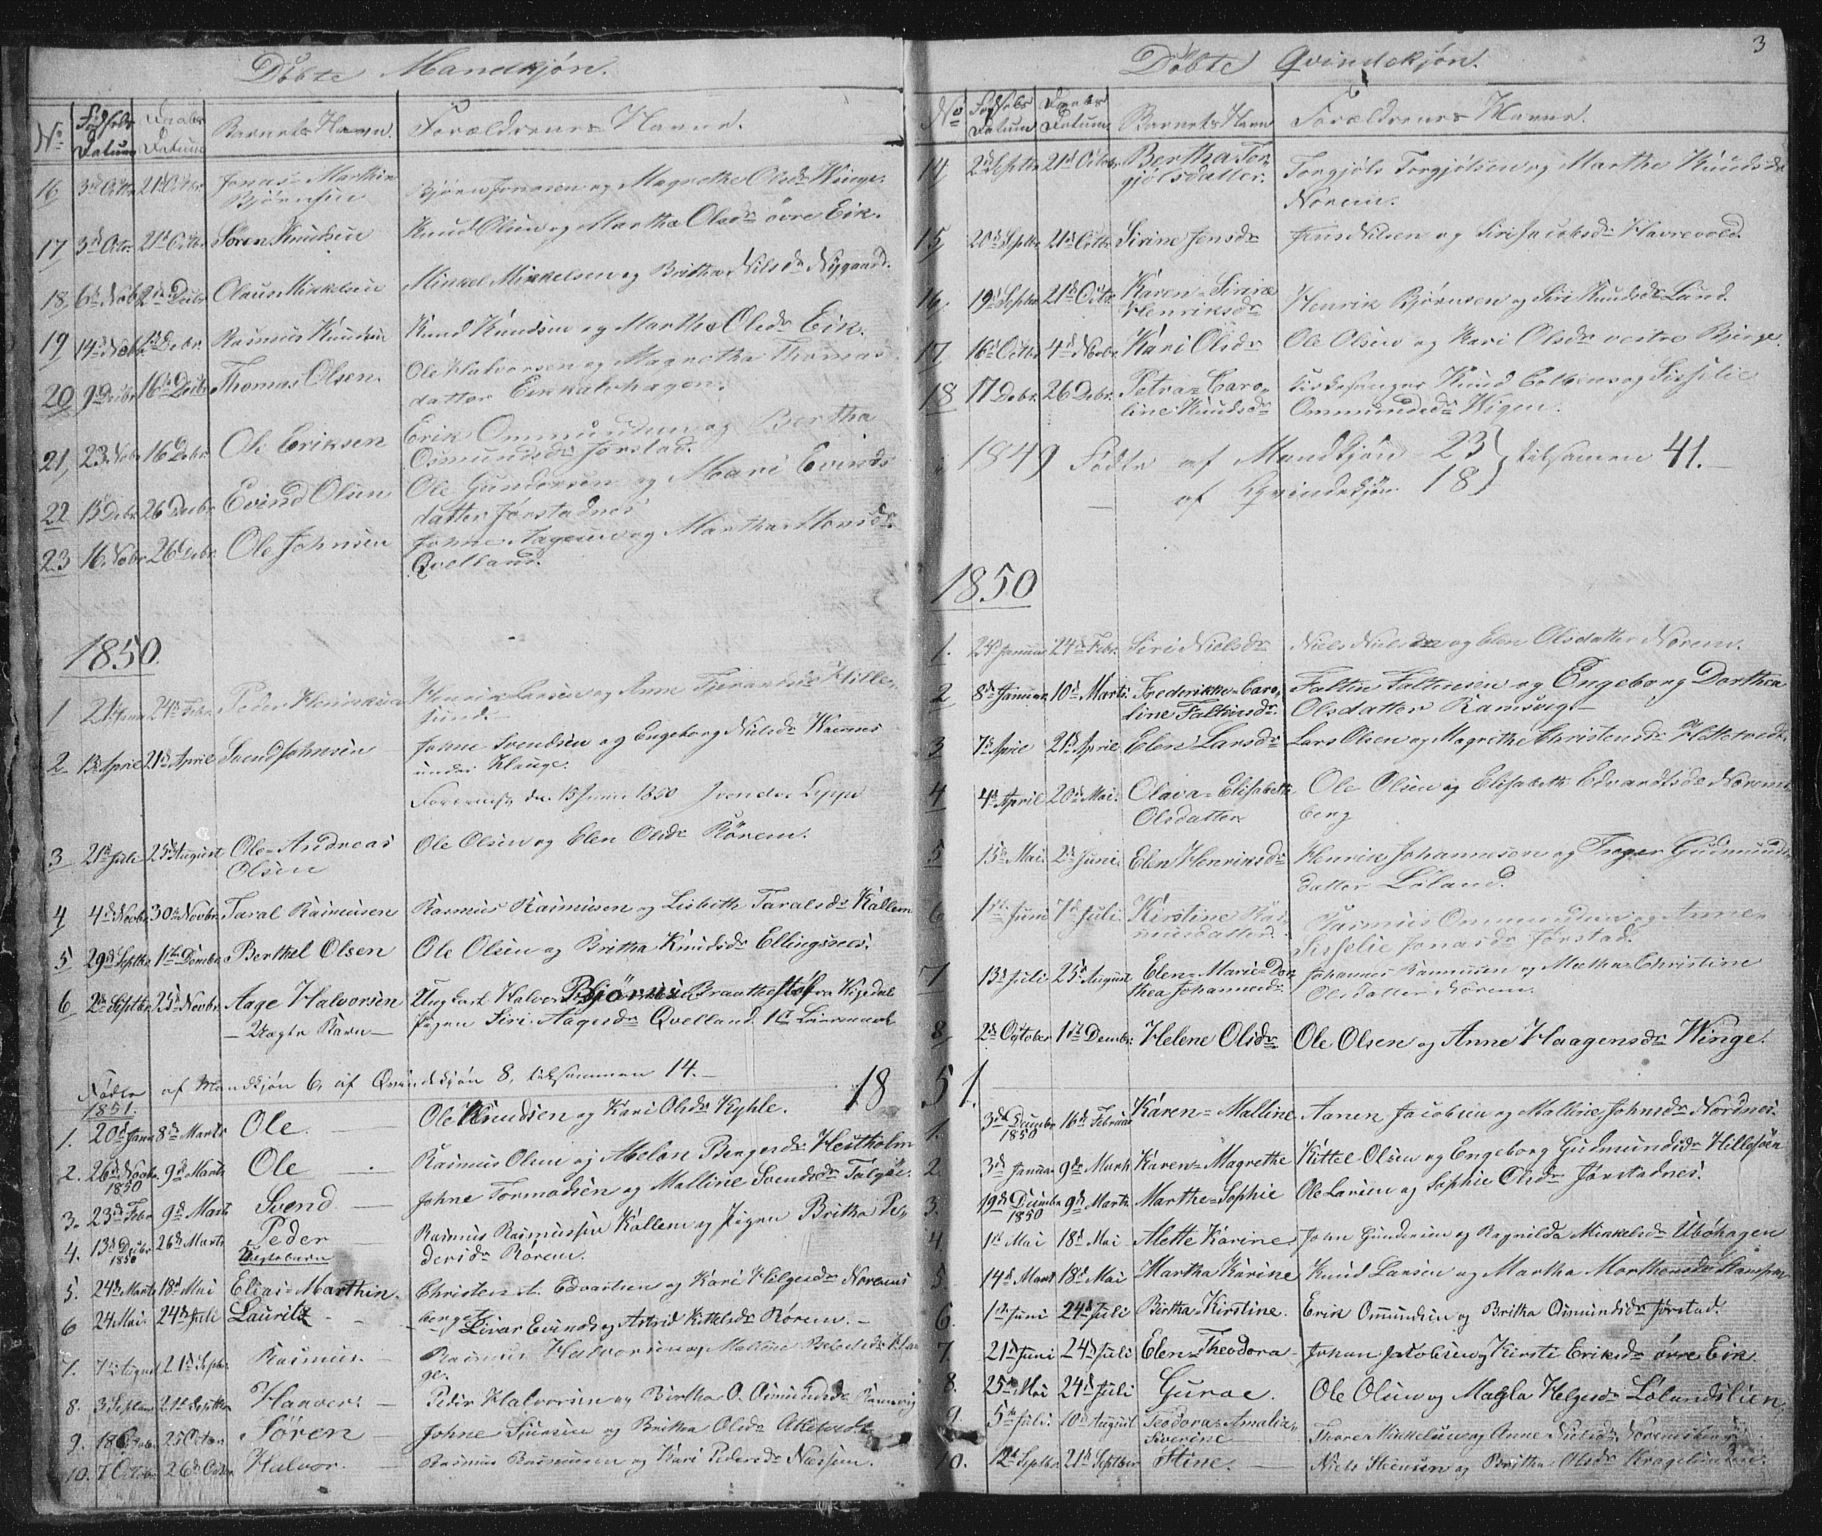 Døbte Mandkjøn.
No Fødsels Datum Daabs Datum Barnets Navn Forældrenes Navne.
16 3d Octbr 21d Octbr Jonas Marthin Bjørnsen Bjørn Jonasen og Magrethe Olsdr Winge.
17 3d Octr 21d Octbr Søren Knudsen Knud Olsen og Martha Olsdr øvre Eik.
18 6d Novbr 2d Decbr Claus Mikkelsen Mikkel Mikkelsen og Britha Nilsdr Nygaard.
19 14d Novbr Decbr Rasmus Knudsen Knud Knudsen og Martha Olsdr Eik.
20 9 Decbr 16d Decbr Thomas Olsen. Ole Halvorsen og Magretha Thomas
datter Eikkalshagen.
21, 23 Novbr 16 Debr Ole Eriksen Erik Ommundsen og Bertha
Osmundsdr Jørstad.
22 13 Debr 26 Decbr Evind Olsen Ole Gundersen og Mari Evinds
datter Jørstadnes
23 16 Novbr 26 Debr Ole Johnsen Johne Aagesen og Martha Monsdr
Qvelland.
1850.
1 21 Janr 24d Febr. Peder Henriksen Henrik Larsen og Anne Tjerandsdr Hille-
sund.
2 13 April 21d April Svend Johnsen Johne Svendsen og Engeborg Nielsdr
under Hauge.
den 15 Juni 1850
3 21d Juli 25d August Ole Andreas Olsen Ole Olsen og Elen Olsdr Rörem.
4 4d Novbr 30d Novbr. Taral Rasmusen Rasmus Rasmusen og Lisbeth Taralsdr Kallem
5 29d Septbr 1st Dember Berthel Olsen Ole Olsen og Britha Knudsdr Ellingsnes.
6 2d Septbr 25d Novbr. Aage Halvorsen Ungkarl Halvor Bjørnsen Braathe fra
– Uægte Barn – Pigen Siri Aagesdr Qvelland 1st Leiermaal
Fødte af Mandkjön 6, af Qvindekjön 8, tilsammen 14. –
18
1851.
1. 20d Janr 8d Marts Ole. Ole Knudsen og Kari Olsdr Kyhle.
2. 26d Novbr 1850 9d Marts Ole Rasmus Olsen og Melon Bergesdr
3. 23d Febr 9d Marts Svend Johne Tormodsen og Malline Svendsdr Talgje.
4. 13d Decbr 1850 26d Marts Peder Uægtebarn Rasmus Rasmussen Kallem og Pigen Britha Pe-
dersdr Rörem.
5. 24d Marts 18d Mai Elias Marthin. Christen Edvartsen og Kari Helgesdr Norems
berget
6 24 Mai 24d Juli Lauritz Livar Evindsen og Astrid Kittelsdr Rörem. –
7. 7d August 21d Septbr Rasmus. – Rasmus Halvorsen og Malline
8. 3 Septbr 21d Septbr Peder Halvorsen og Bertha O. Osmundsdr Ramsvig
9. 18 25 Octbr Sören – Johne og Britha Olsdr
10. 7 October 26d Octbr Halvor. – Rasmus Rasmusen og Kari Pedersdr
3
Døbte Qvindekjøn.
No Fødsels Datum Daabs Datum Barnets Navn Forældrenes Navne.
14, 2d Septbr 21d Octbr. Bertha Tor-
gjølsdatter. Torgjøls Torgjølsen og Marthe Knudsdr
Norem.
15, 20d Septbr 21d Octbr. Sirine Jensdr Jens Nilsen og Siri Jacobsdr Havrevold.
16, 19d Septbr 21d Octbr Karen Sirine Henriksdr Henrik Bjørnsen og Siri Knudsdr Lund.
17, 16d Octbr 4d Novbr. Kari Olsdr Ole Olsen og Kari Olsdr vestre Bjerge.
18 17 Debr. 26 Debr. Petra Caro-
line Knudsdr Kirkesanger Knud Colbens og Sissilie
Ommundsdr Wigen.
1849 Fødte af Mandkjön 23
af Qvindekjön 18 } tilsamen 41. –
1850
1. 24d Januar 24d Febr. Siri Nielsdr Niels Nielsen og Elen Olsdatter Norem.
2 8d Januar 10d Marts. Frederikke Caro-
line Faltinsdr. Faltin Faltinsen og Engeborg Dorthea
Olsdatter Ramsvig –
3 7d April 21d April Elen Larsdr Lars Olsen og Magrethe Christensdr
4 4d April 20d Mai. Olava Elisabeth Olsdatter Ole Olsen og Elisabeth Edvardsdr Norems
berg
5 15d Mai 2d Juni Elen Henriksdr Henrik Johannesen og Inger Gudmunds
datter Löland.
6 1st Juni 7d Juli. Kirstine Ras-
musdatter. Rasmus Ommundsen og Anne
Sisselie Jonasdr Jørstad.
7 13d Juli 25d August Elen Marie Dor-
thea Johannesdr Johannes Rasmusen og Metha Christine
Olsdatter Norem.
8 2d October 1st Dember. Helene Olsdr Ole Olsen og Anne Haagensdr Winge.
51.
1. 3d Decembr 1850 16d Februar Karen Malline Aanen Jacobsen og Malline Johnsdr Nordnes.
2. 3d Januar 9d Marts Karen Magrethe Kittel Olsen og Engeborg Gudmundsdr Hillesøen
3. 19d Decembr 1850 9d Marts Marthe Sophie Ole Larsen og Sophie Olsdr Jørstadnes.
4 1st Mai 18d Mai Alette Karine John Gundersen og Ragnilda Mikkelsdr
5 14d Marts 18d Mai Martha Karine Knud Larsen og Martha
6. 1st Juni 24d Juli Birtha Kirstine. Erik Omundsen og Britha Osmundsdr Jørstad.
7. 21d Juni 24d Juli Elen Theodora Johan Jakobsen og Kirsti Eriksdr øvre Eik
8. 25d Mai 24d Juli Guroe. Ole Olsen og Magla Helgesdr Lølandslien
9. 5d Juli. 10d August Teodora Amalia Siverine – Thore Mikkelsen og Anne Nielsdr Noremsberg
10. 12d Septbr 21d Septbr Stine. – Niels Steensen og Britha Olsdr